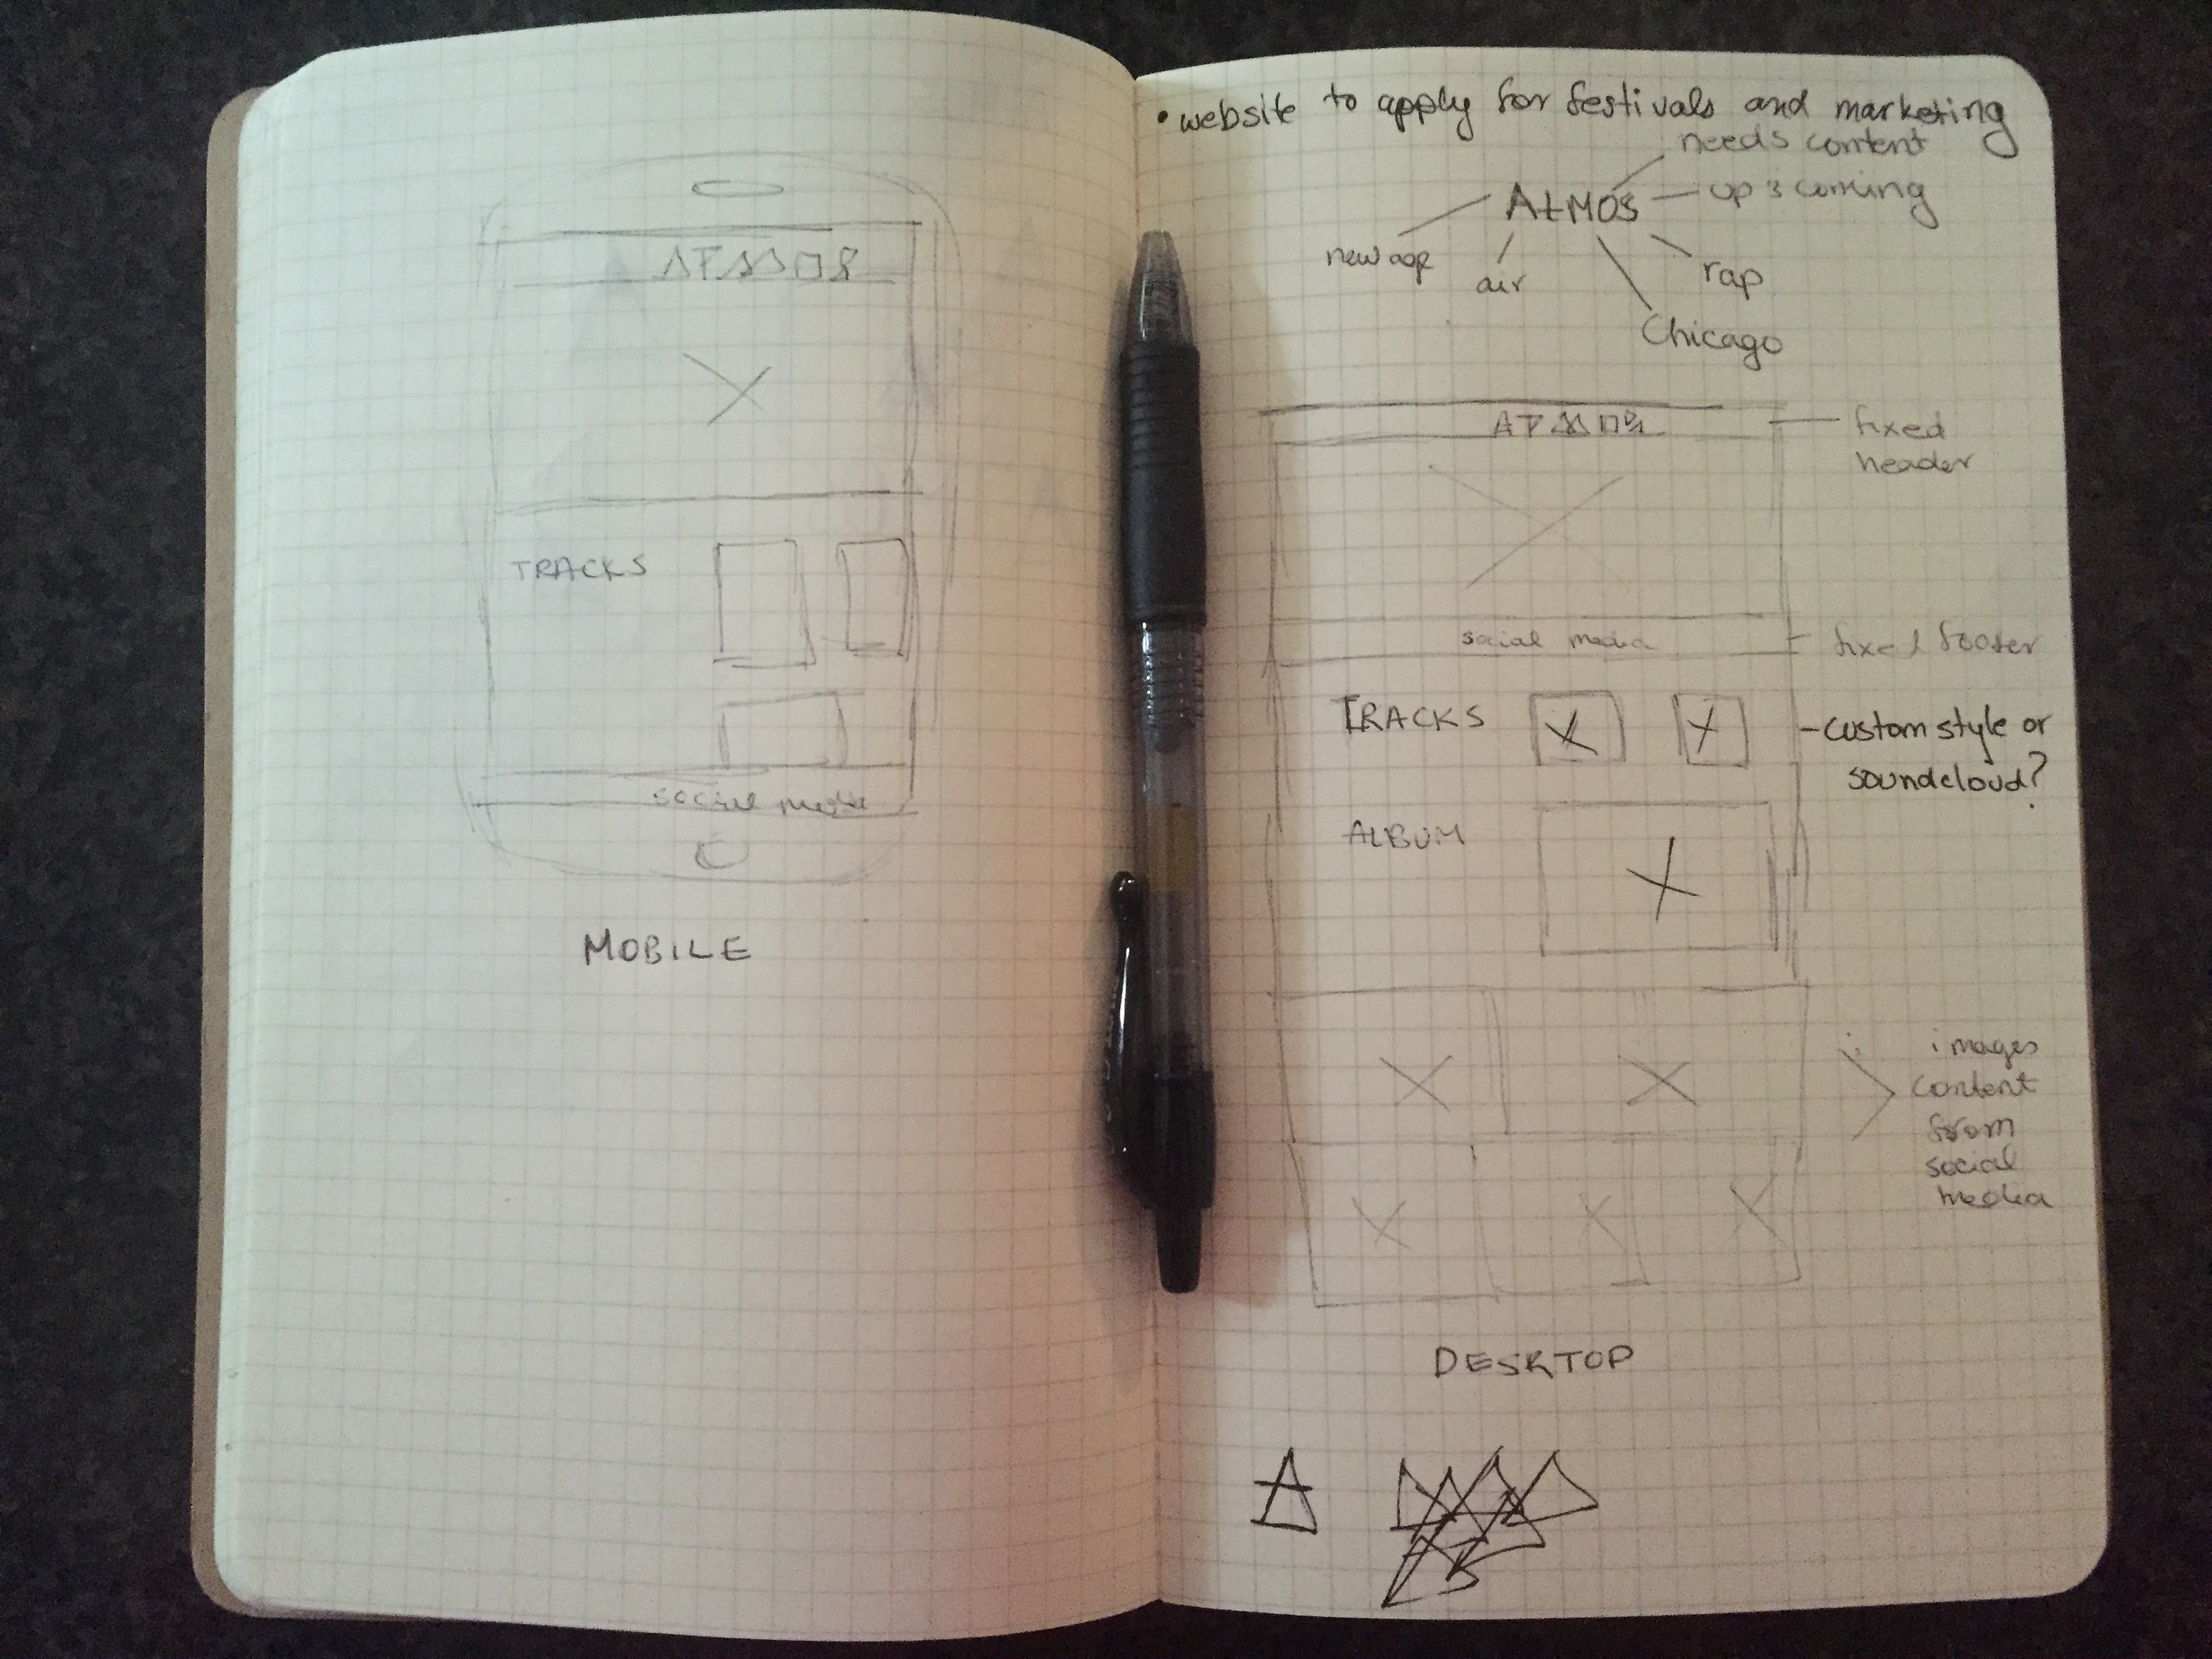 ATMOS
TRACKS
social media
MOBILE
• website to apply for festivals and marketing
needs content
ATMOS
up & coming
new age
air
rap
Chicago
ATMOS
fixed
header
social media
fixed footer
TRACKS
- custom style or
soundcloud?
ALBUM
images
content
from
social
media
DESKTOP
A